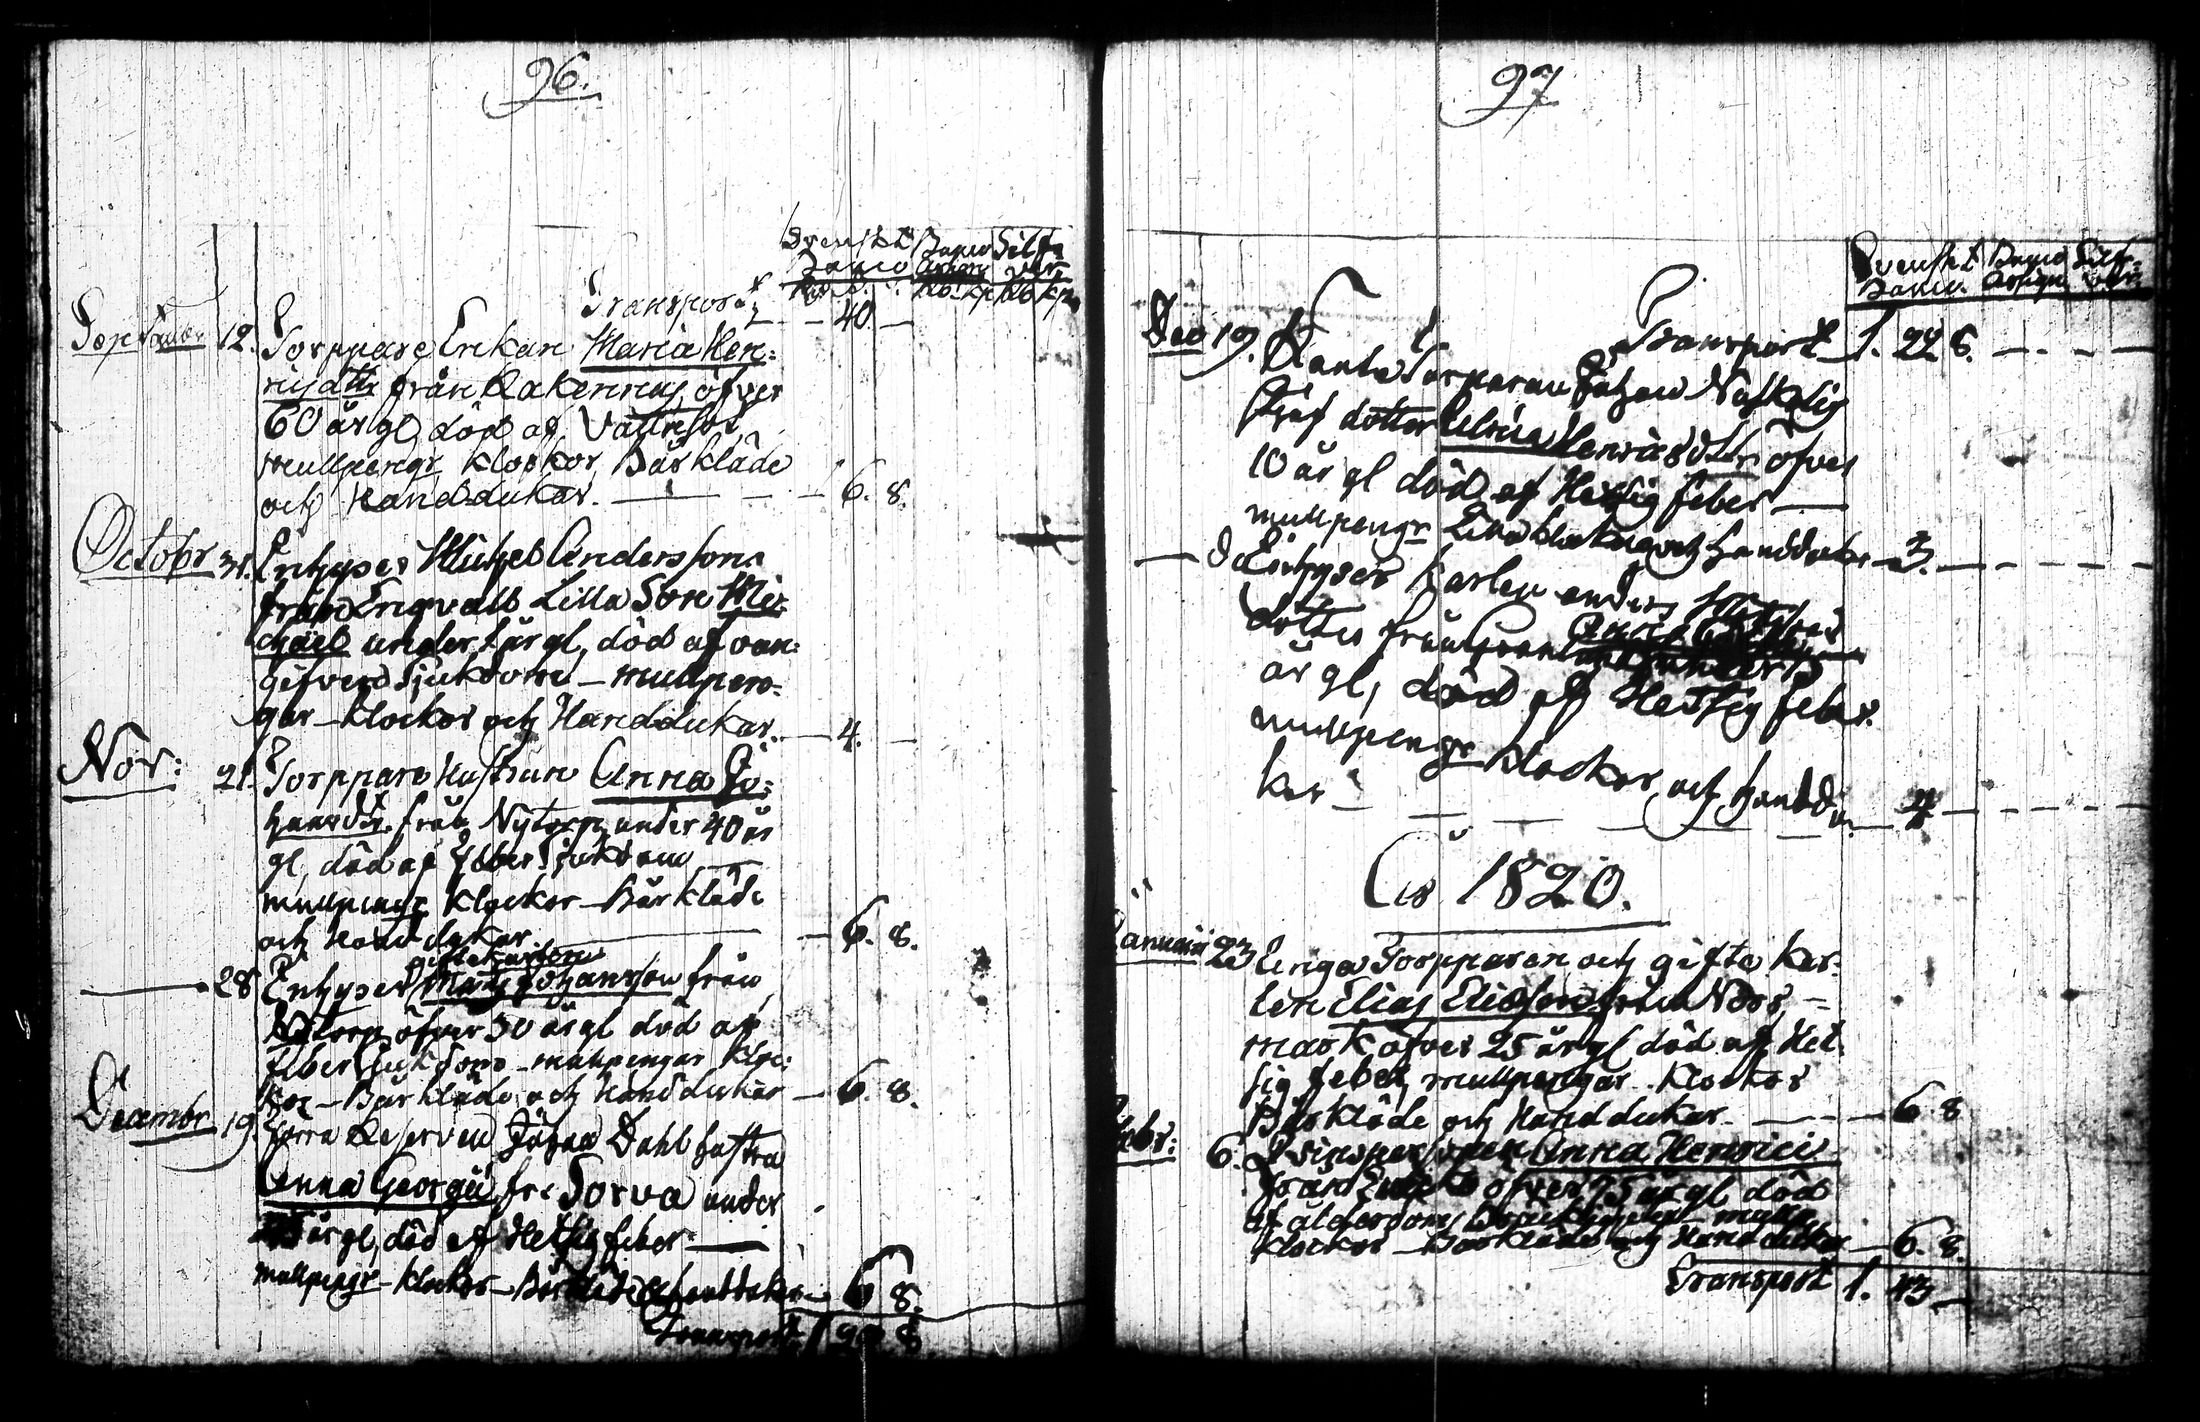 96.
Svenskt Banco Silf-
Banco Assign ver
Rd Kp Rb Kp
Transport - - 40. -
September 12. Torppare Enkan Maria Hen-
från Rakennus öfver
60 år gl, död af
mullpengr klockor, Bårkläde
och Handdukar. - - - 6. 8.
Octobr 31. Inhyses Michel Andersson
från Lilla Son Mi-
chael under 1 år gl, död af oan-
gifven Sjukdom - mullpen-
gar - klockor och Handdukar. - 4. -
Nov: 21. Torppare Hustrun Anna Jo-
hansdtr. från Nytorp under 40 år
gl, död af feber Sjukdom
mullpengr klockor - Bårkläde
och Handdukar - 6. 8.
gifte karlen
28 Inhyses Mats Johansson från
Nytorp öfver 30 år gl död af
feber Sjukdom - mullpengar kloc-
kor - Bårkläde och Handdukar - 6. 8.
Decembr 19. Johan Dahl hustru
Anna Georgii fr. Torva under
år gl, död af Hetsig feber -
mullpengr - klockor - Bårkläde och handdukar - 6 8.
Transport 1 22 8
97
Svenskt Banco Silf-
Banco. Assign ver
Transport 1. 22 8. - - -
Dec 19. Torparen Johan
dotter Henricsdttr öfver
10 år gl död af Hetsig feber -
mullpengr Lilla klockan och handdukar - 3. - - -
- d Inhyses karlen Anders
dotter från
år gl, död af Hetsig feber.
mullpengr klockor och handdu-
kar - - - 4 - - -
År 1820.
Januarii 23 Unga Torpparen och gifte kar-
len Elias Eliasson från Norr-
mark öfver 25 år gl död af Het-
sig feber, mullpengar - klockor
Bårkläde och Handdukar. - - - 6 8
Febr: 6. Anna Henrici
från öfver 75 år gl död
af ålderdoms mullp.
klockor - Bårkläde och Handdukar - 6. 8.
Transport 1. 43 -